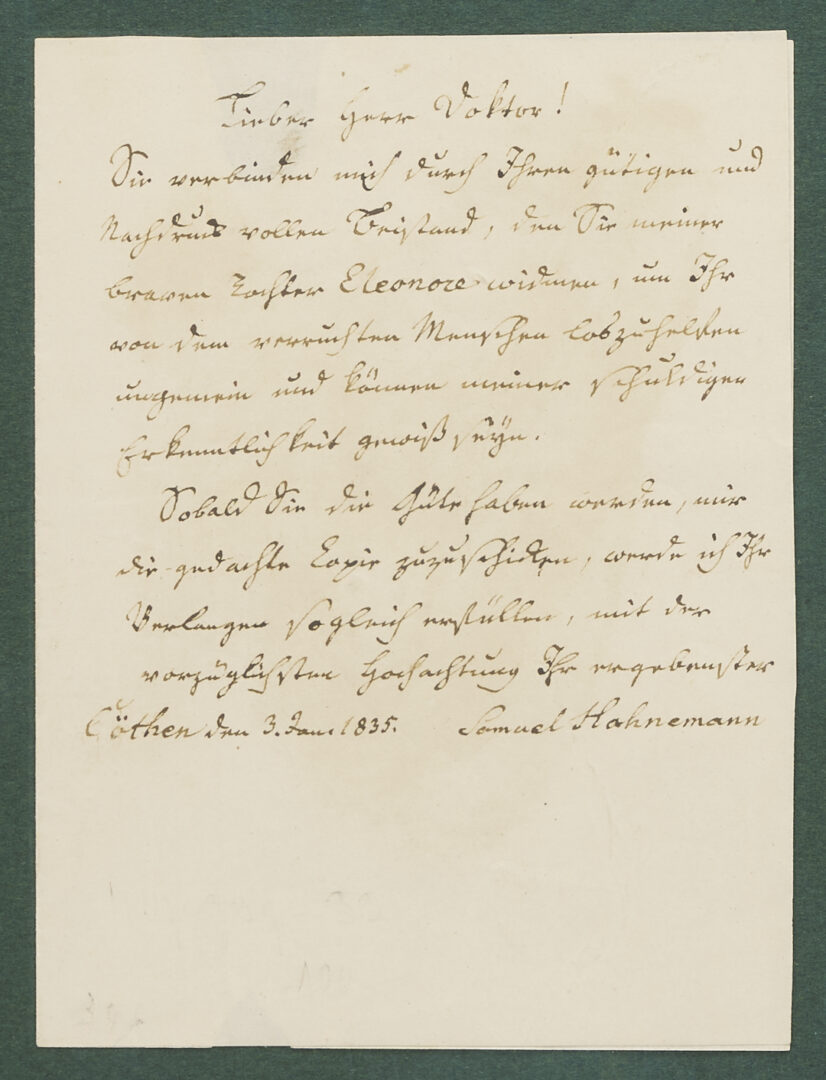 Lieber Herr Doktor!
Sie verbinden mich durch Ihren gütigen und
Nachdruck vollen Beistand, den Sie meiner
braven Tochter Eleonore widmen, um Ihr
von dem verruchten Menschen loszuhelfen
ungemein und können meiner schuldigen
Erkenntlichkeit gewiß seyn.
Sobald Sie die Güte haben werden, mir
die gedachte Copie zuzuschicken, werde ich Ihr
Verlangen sogleich erfüllen, mit der
vorzüglichsten Hochachtung Ihr ergebenster
Cöthen den 3. Jan. 1835. Samuel Hahnemann